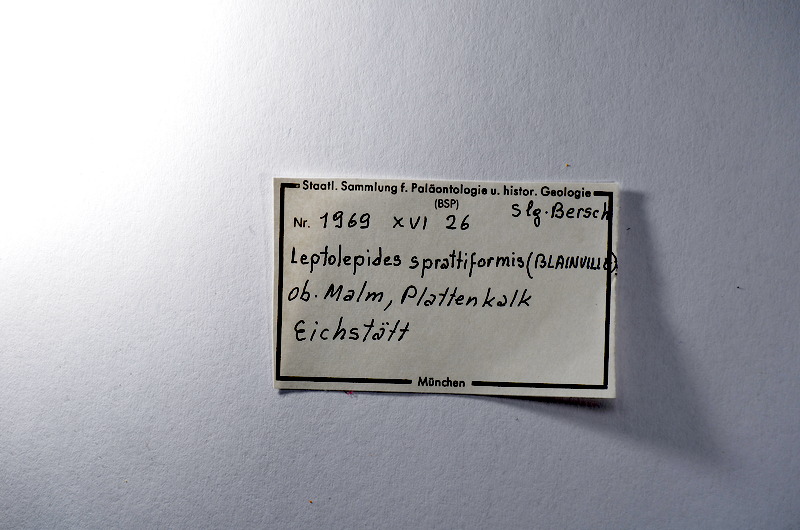 Staatl. Sammlung f. Paläontologie u. histor. Geologie
(BSP)
Nr. 1969 XVI 26 Slg. Bersch
Leptolepides sprattiformis (BLAINVILLE)
ob. Malm, Plattenkalk
Eichstätt
München